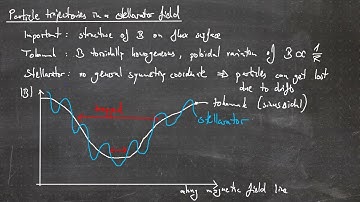 Particle trajectories in a stellarator field
Important : structure of B on flux surface
Tokamak : B toroidally homogeneous, poloidal variation of B ∝ 1/R
Stellarator : no general symmetry coordinate ⇒ particles can get lost
due to drifts
|B|
tokamak (sinusoidal)
stellarator
along magnetic field line